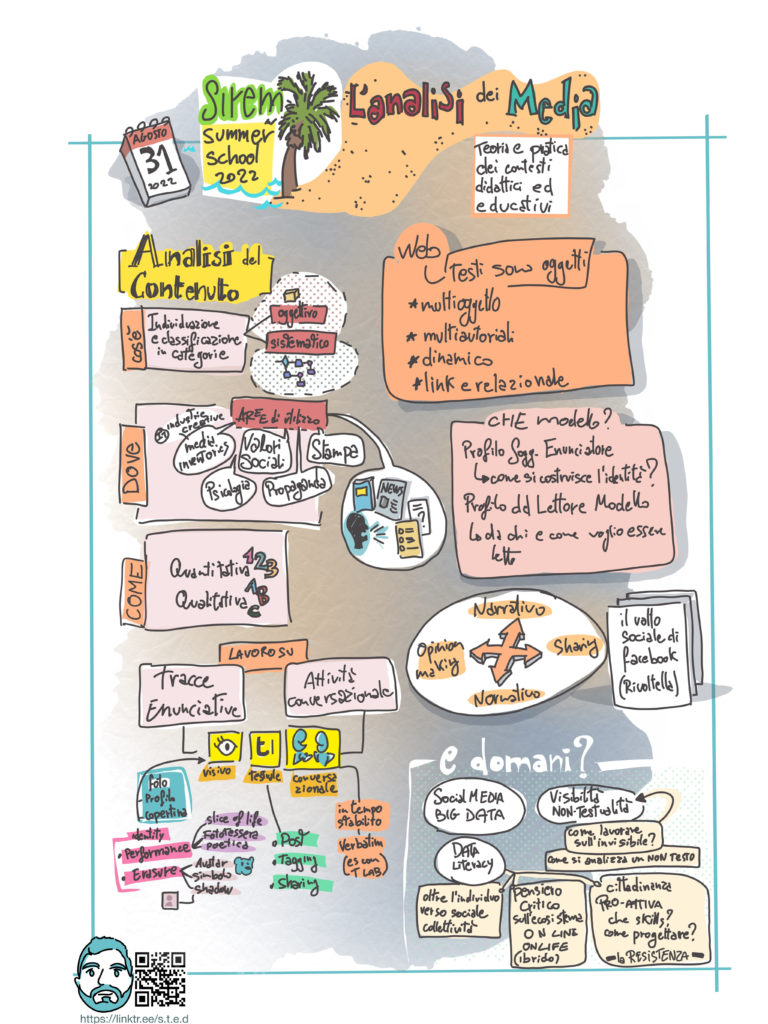 Sirem
summer
school
2022
L'analisi dei Media
AGOSTO
31
2022
Teoria e pratica
dei contesti
didattici ed
educativi
Analisi del
Contenuto
cos'è
Individuazione
e classificazione
in categorie
oggettivo
sistematico
DOVE
AREE di utilizzo
industrie
creative
media
inventories
Valori
Sociali
Stampa
Psicologia
Propaganda
NEWS
COME
Quantitativa 123
Qualitativa ABC
Web
Testi sono oggetti
* multioggetto
* multiautoriali
* dinamico
* link e relazionale
CHE modello?
Profilo Sogg. Enunciatore
come si costruisce l'identità?
Profilo del Lettore Modello
da chi e come voglio essere
letto
Narrativo
Opinion
making
Sharing
Normativo
il volto
sociale di
facebook
(Rivoltella)
LAVORO SU
Tracce
Enunciative
Attività
conversazionale
visivo
testuale
conversa
zionale
foto
Profilo
copertina
identity
• Performance
• Erasure
slice of life
Fototessera
poetica
Avatar
simbolo
shadow
• Post
• Tagging
• Sharing
in tempo
stabilito
Verbatim
(es con
T LAB)
e domani?
Social MEDIA
BIG DATA
Visibilità
NON-Testualità
come lavorare
sull'invisibile?
come si analizza un NON TESTO
DATA
Literacy
oltre l'individuo
verso sociale
collettività
pensiero
critico
sull'ecosistema
ON LINE
ONLIFE
(ibrido)
cittadinanza
PRO-ATTIVA
che skills?
come progettare?
la RESISTENZA
https://linktr.ee/s.t.e.d